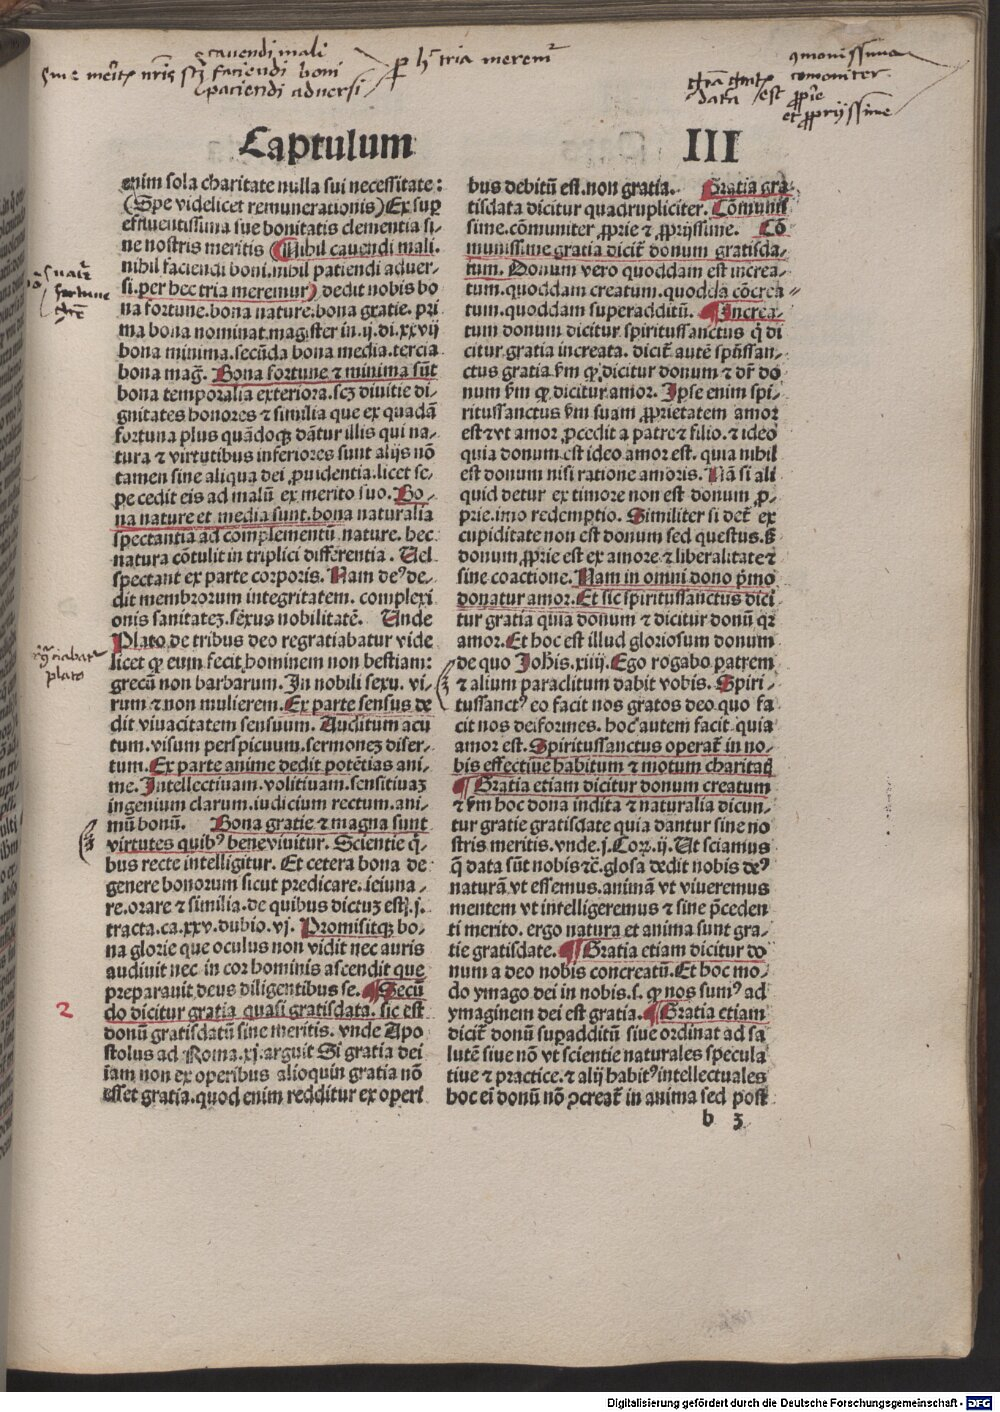 cauendi mali
Sine meritis nr̃is scꝫ faciendi boni ꝑ h̃ tria meremr̃
paciendi aduersi
Captulum III
enim sola charitate nulla sui necessitate:
(Spe videlicet remunerationis) Ex suꝑ
effluentissima sue bonitatis clementia si⸗
ne nostris meritis (Nihil cauendi mali.
nihil faciendi boni. nihil patiendi aduer⸗
si. per hec tria meremur) dedit nobis bo
na fortune. bona nature. bona gratie. pri
ma bona nominat magister in .ij. di. xxvij
bona minima. secũda bona media. tercia
bona mag̃. Bona fortune ⁊ minima sũt
bona temporalia exteriora. scꝫ diuitie di⸗
gnitates honores ⁊ similia que ex quadã
fortuna plus quãdoqꝫ dãtur illis qui na⸗
tura ⁊ virtutibus inferiores sunt alijs nõ
tamen sine aliqua dei ꝓuidentia. licet se⸗
pe cedit eis ad malũ ex merito suo. Bo⸗
na nature et media sunt. bona naturalia
spectantia ad complementũ nature. hec
natura cõtulit in triplici differentia. Uel
spectant ex parte corporis. Nam deꝰ de⸗
dit membrorum integritatem. complexi
onis sanitateꝫ. sexus nobilitatẽ. Unde
Plato de tribus deo regratiabatur vide
licet ꝙ eum fecit hominem non bestiam:
grecũ non barbarum. In nobili sexu. vi⸗
rum ⁊ non mulierem. Ex parte sensus de
dit viuacitatem sensuum. Auditum acu
tum. visum perspicuum. sermoneꝫ diser⸗
tum. Ex parte anime dedit potẽtias ani⸗
me. Intellectiuam. volitiuam. sensitiuaꝫ
ingenium clarum. iudicium rectum. ani⸗
mũ bonũ. Bona gratie ⁊ magna sunt
virtutes quibꝰ beneviuitur. Scientie q̃⸗
bus recte intelligitur. Et cetera bona de
genere bonorum sicut predicare. ieiuna⸗
re. orare ⁊ similia. de quibus dictuꝫ est. j.
tracta. ca. xxv. dubio. vj. Promisitqꝫ bo⸗
na glorie que oculus non vidit nec auris
audiuit nec in cor hominis ascendit que
preparauit deus diligentibus se. ¶ Secũ
do dicitur gratia quasi gratisdata. sic est
donũ gratisdatũ sine meritis. vnde Apo
stolus ad Roma. xj. arguit Si gratia dei
iam non ex operibus alioquin gratia nõ
esset gratia. quod enim redditur ex operi
bus debitũ est. non gratia. Gratia gra⸗
tisdata dicitur quadrupliciter. Cõmunis
sime. cõmuniter ꝓprie ⁊ ꝓprijssime. Cõ
munissime gratia dicit̃ donum gratisda⸗
tum. Donum vero quoddam est increa⸗
tum. quoddam creatum. quodda cõcrea⸗
tum. quoddam superadditũ. ¶ Increa⸗
tum donum dicitur spiritussanctus q̃ di
citur gratia increata. dicit̃ autẽ sp̃ussan⸗
ctus gratia ẞm ꝙ dicitur donum ⁊ dr̃ do
num ẞm ꝙ dicitur amor. Ipse enim spi⸗
ritussanctus ẞm suam ꝓprietatem amor
est ⁊ vt amor ꝓcedit a patre ⁊ filio. ⁊ ideo
quia donum est ideo amor est. quia nihil
est donum nisi ratione amoris. Nã si ali
quid detur ex timore non est donum ꝓ⸗
prie. imo redemptio. Similiter si det̃ ex
cupiditate non est donum sed questus. ẞ
donum ꝓprie est ex amore ⁊ liberalitate ⁊
sine coactione. Nam in omni dono p̃mo
donatur amor. Et sic spiritussanctus dici
tur gratia quia donum ⁊ dicitur donũ qr̃
amor. Et hoc est illud gloriosum donum
de quo Joh̃is. xiiij. Ego rogabo patrem
⁊ alium paraclitum dabit vobis. Spiri⸗
tussanctꝰ eo facit nos gratos deo. quo fa
cit nos deiformes. hoc autem facit quia
amor est. Spiritussanctus operat̃ in no⸗
bis effectiue habitum ⁊ motum charitatꝭ
¶ Gratia etiam dicitur donum creatum
⁊ ẞm hoc dona indita ⁊ naturalia dicun⸗
tur gratie gratisdate quia dantur sine no
stris meritis. vnde. j. Coꝝ. ij. Ut sciamus
q̃ data sũt nobis ⁊c̃. glosa dedit nobis deꝰ
naturã vt essemus. animã vt viueremus
mentem vt intelligeremus ⁊ sine p̃ceden
ti merito. ergo natura et anima sunt gra⸗
tie gratisdate. ¶ Gratia etiam dicitur do
num a deo nobis concreatũ. Et hoc mo⸗
do ymago dei in nobis. s. ꝙ nos sumꝰ ad
ymaginem dei est gratia. ¶ Gratia etiam
dicit̃ donũ suꝑadditũ siue ordinat ad sa
lutẽ siue nõ vt scientie naturales specula
tiue ⁊ practice. ⁊ alij habitꝰ intellectuales
hoc eĩ donũ nõ ꝯcreat̃ in anima sed post
b 3
plato
2
Digitalisierung gefördert durch die Deutsche Forschungsgemeinschaft - DFG